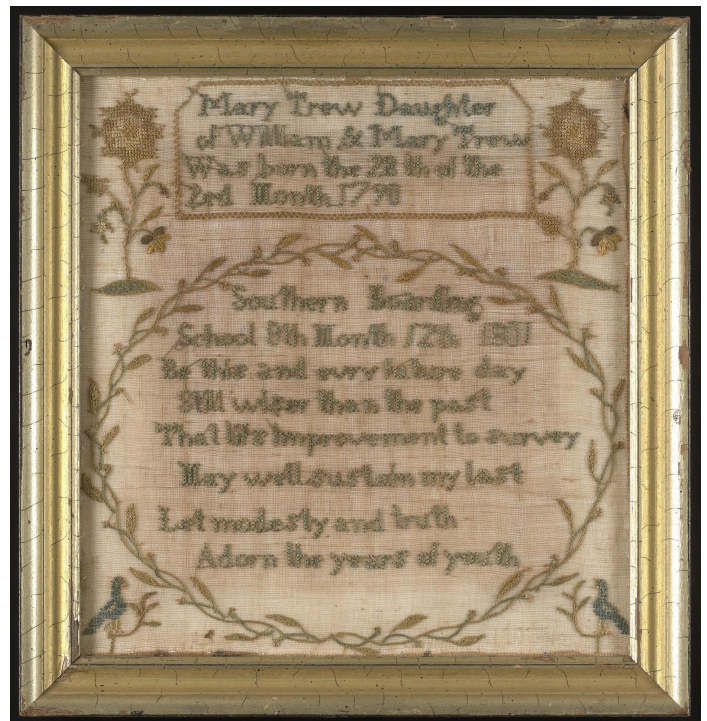 Mary Trew Daughter
of William & Mary Trew
Was born the 28 th of the
2rd Month 1790
Southern Boarding
School 8th Month 12th 1801
Be this and evry future day
Still wiser than the past
That life's improvement to survey
May well sustain my last
Let modesty and truth
Adorn the years of youth